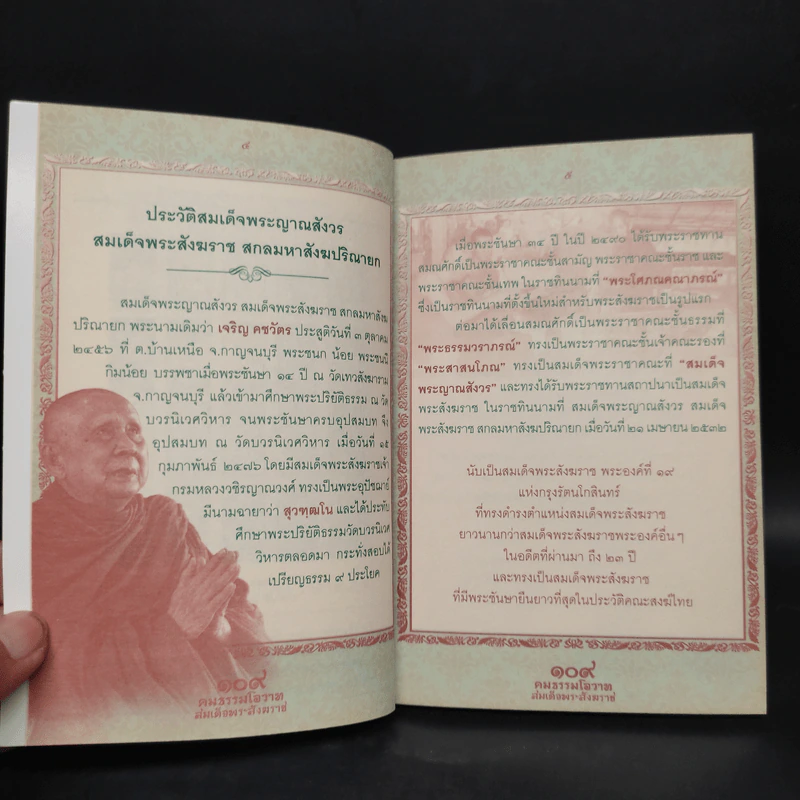 ๔
ประวัติสมเด็จพระญาณสังวร
สมเด็จพระสังฆราช สกลมหาสังฆปริณายก
สมเด็จพระญาณสังวร สมเด็จพระสังฆราช สกลมหาสังฆ
ปริณายก พระนามเดิมว่า เจริญ คชวัตร ประสูติวันที่ ๓ ตุลาคม
๒๔๕๖ ที่ ต.บ้านเหนือ จ.กาญจนบุรี พระชนก น้อย พระชนนี
กิมน้อย บรรพชาเมื่อพระชันษา ๑๔ ปี ณ วัดเทวสังฆาราม
จ.กาญจนบุรี แล้วเข้ามาศึกษาพระปริยัติธรรม ณ วัด
บวรนิเวศวิหาร จนพระชันษาครบอุปสมบท จึง
อุปสมบท ณ วัดบวรนิเวศวิหาร เมื่อวันที่ ๑๕
กุมภาพันธ์ ๒๔๗๖ โดยมีสมเด็จพระสังฆราชเจ้า
กรมหลวงวชิรญาณวงศ์ ทรงเป็นพระอุปัชฌาย์
มีนามฉายาว่า สุวฑฺฒโน และได้ประทับ
ศึกษาพระปริยัติธรรมวัดบวรนิเวศ
วิหารตลอดมา กระทั่งสอบได้
เปรียญธรรม ๙ ประโยค
๑๐๙
คมธรรมโอวาท
สมเด็จพระสังฆราช
๕
เมื่อพระชันษา ๓๔ ปี ในปี ๒๔๙๐ ได้รับพระราชทาน
สมณศักดิ์เป็นพระราชาคณะชั้นสามัญ พระราชาคณะชั้นราช และ
พระราชาคณะชั้นเทพ ในราชทินนามที่ “พระโศภณคณาภรณ์”
ซึ่งเป็นราชทินนามที่ตั้งขึ้นใหม่สำหรับพระสังฆราชเป็นรูปแรก
ต่อมาได้เลื่อนสมณศักดิ์เป็นพระราชาคณะชั้นธรรมที่
“พระธรรมวราภรณ์” ทรงเป็นพระราชาคณะชั้นเจ้าคณะรองที่
“พระสาสนโภณ” ทรงเป็นสมเด็จพระราชาคณะที่ “สมเด็จ
พระญาณสังวร” และทรงได้รับพระราชทานสถาปนาเป็นสมเด็จ
พระสังฆราช ในราชทินนามที่ สมเด็จพระญาณสังวร สมเด็จ
พระสังฆราช สกลมหาสังฆปริณายก เมื่อวันที่ ๒๑ เมษายน ๒๕๓๒
นับเป็นสมเด็จพระสังฆราช พระองค์ที่ ๑๙
แห่งกรุงรัตนโกสินทร์
ที่ทรงดำรงตำแหน่งสมเด็จพระสังฆราช
ยาวนานกว่าสมเด็จพระสังฆราชพระองค์อื่นๆ
ในอดีตที่ผ่านมา ถึง ๒๓ ปี
และทรงเป็นสมเด็จพระสังฆราช
ที่มีพระชันษายืนยาวที่สุดในประวัติคณะสงฆ์ไทย
๑๐๙
คมธรรมโอวาท
สมเด็จพระสังฆราช